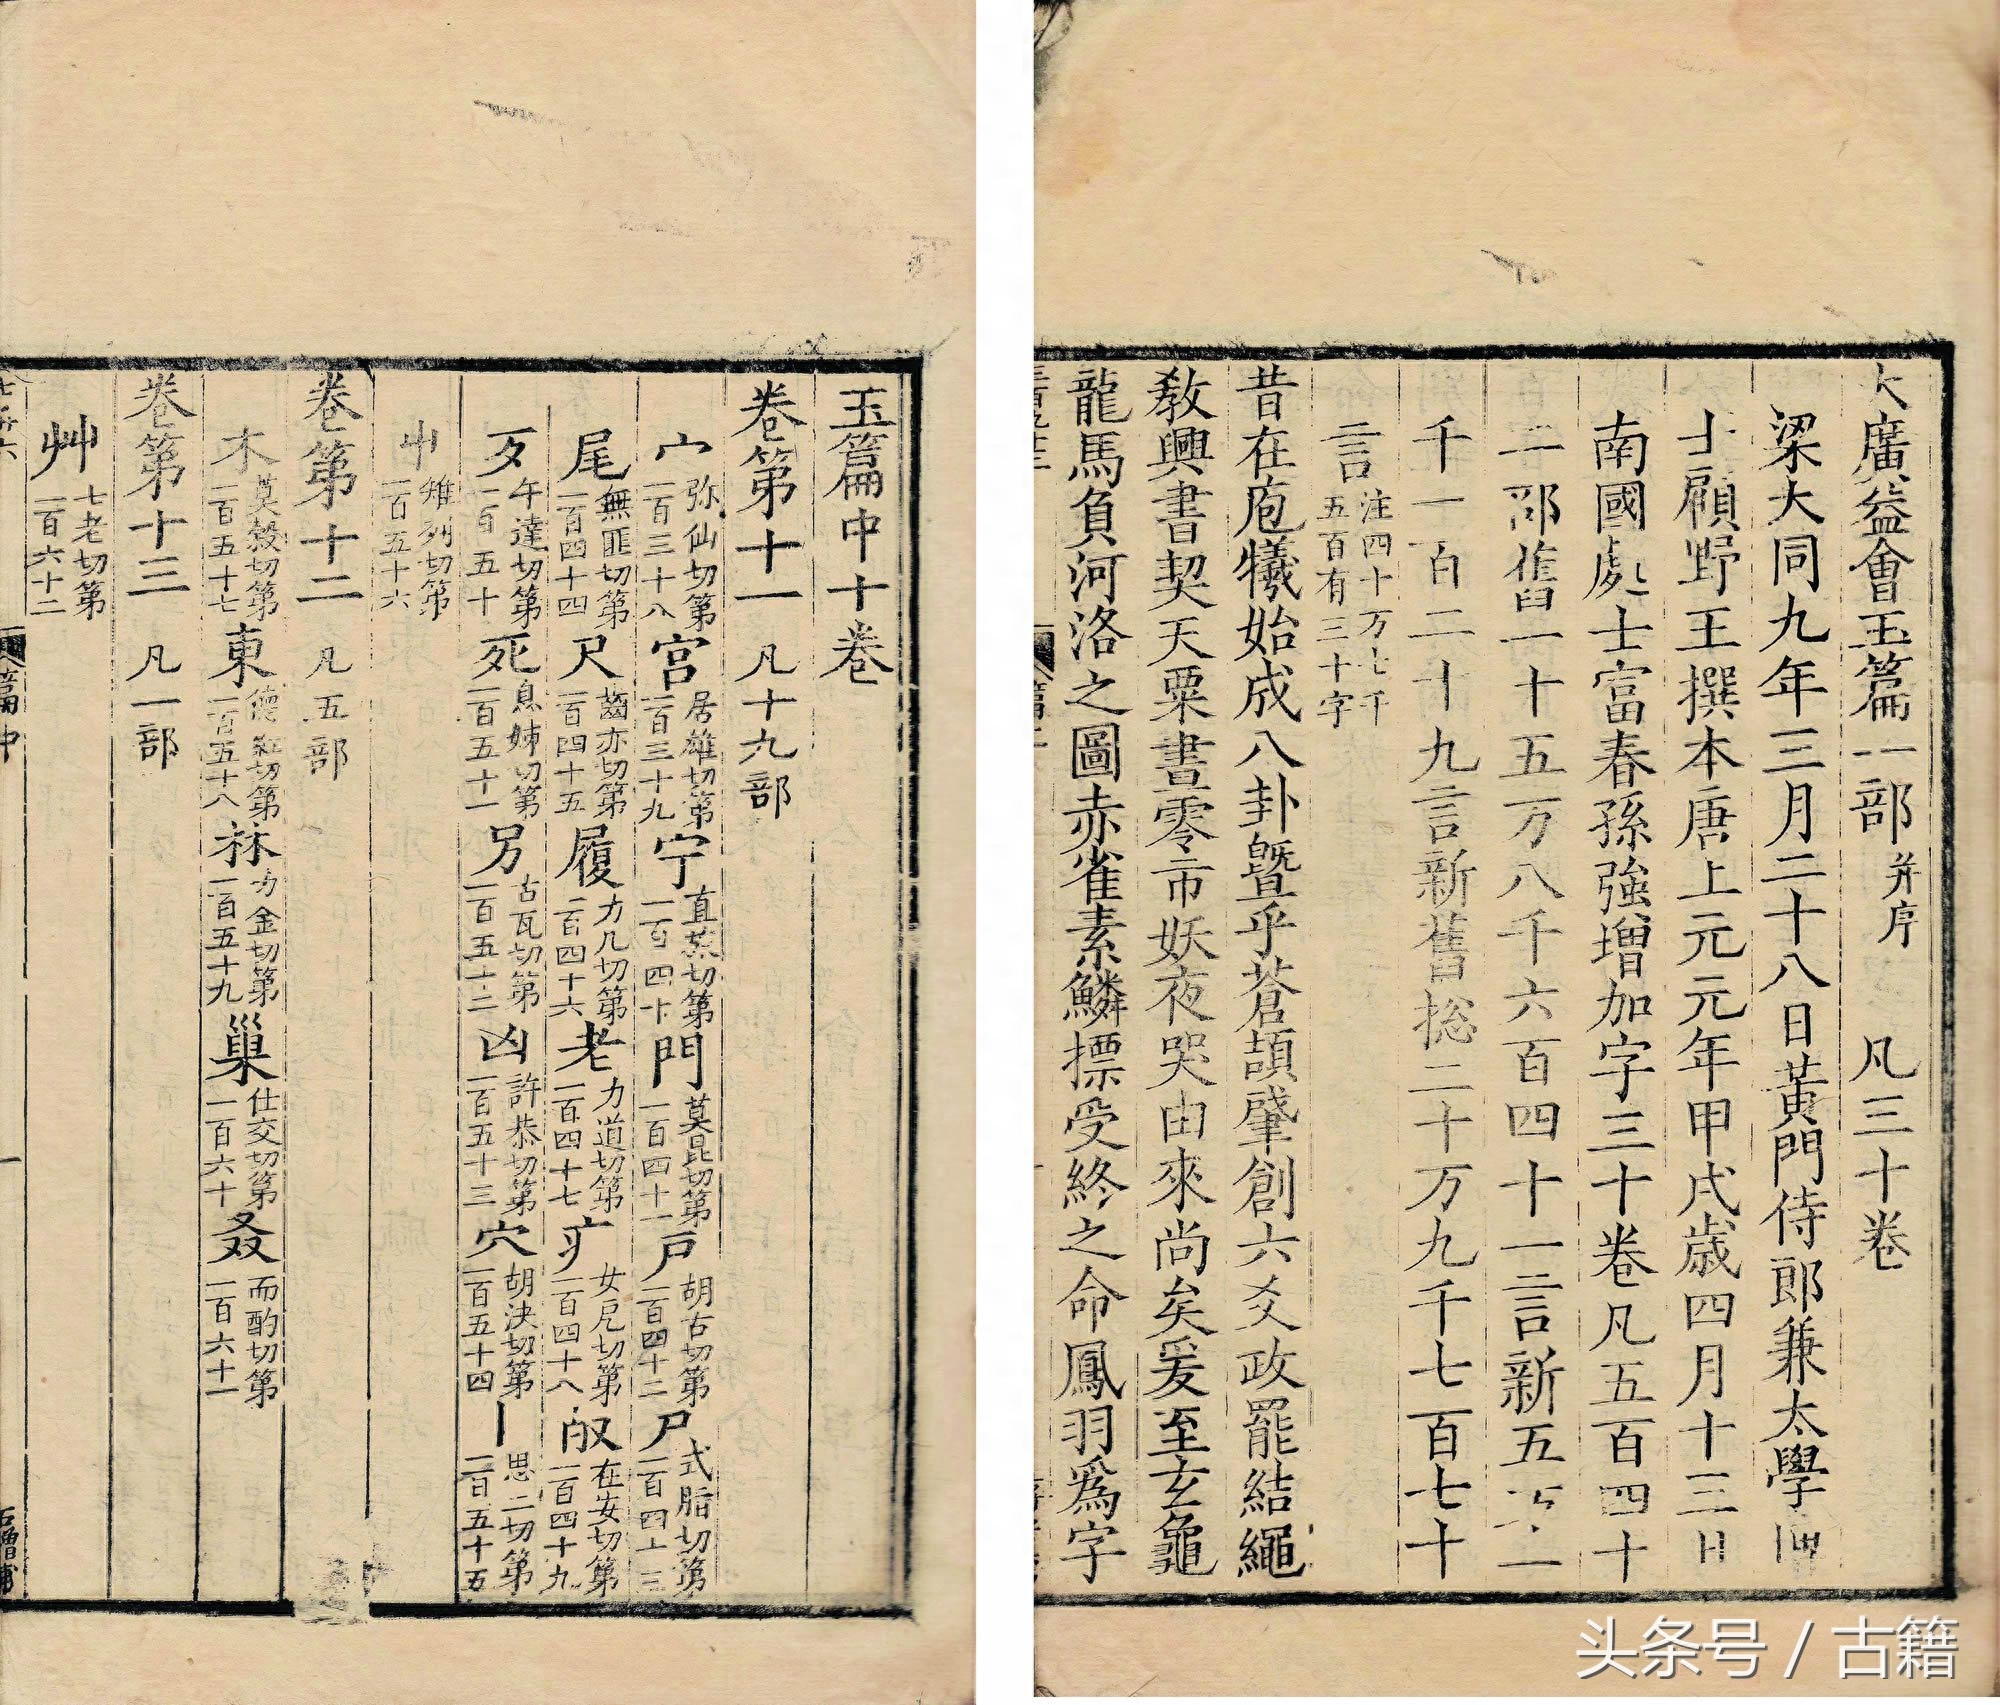 大廣益會玉篇一部 并序 凡三十卷
梁大同九年三月二十八日黃門侍郎兼太學
士顧野王撰本唐上元元年甲戌歳四月十三日
南國處士富春孫強增加字三十卷凡五百四十
二部舊一十五万八千六百四十一言新五
千一百二十九言新舊捴二十万九千七百七十
言 注四十万七千五百有三十字
昔在庖犧始成八卦暨乎蒼頡肇創六爻政罷結繩
教興書契天粟晝零市妖夜哭由來尚矣爰至玄龜
龍馬負河洛之圖赤雀素鱗摽受終之命鳳羽爲字
玉篇中十卷
卷第十一 凡十九部
宀 弥仙切第一百三十八 宮 居雄切第一百三十九 宁 直莇切第一百四十 門 莫昆切第一百四十一 戸 胡古切第一百四十二 尸 式脂切第一百四十三
尾 無匪切第一百四十四 尺 齒亦切第一百四十五 履 力几切第一百四十六 老 力道切第一百四十七 疒 女戹切第一百四十八 㱽 在安切第一百四十九
歹 午達切第一百五十 死 息姊切第一百五十一 另 古瓦切第一百五十二 凶 許恭切第一百五十三 穴 胡決切第一百五十四 丨 思二切第一百五十五
屮 雉列切第一百五十六
卷第十二 凡五部
木 莫榖切第一百五十七 東 德紅切第一百五十八 林 力金切第一百五十九 巢 仕交切第一百六十 叒 而酌切第一百六十一
卷第十三 凡一部
艸 七老切第一百六十二
篇中 一
頭条号 / 古籍